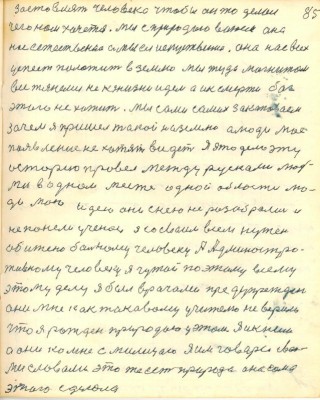 заставлят человека чтобы он то делал 85
чего нам хочется. мы с природою вяжися она
нас умеет положит в землю мы туда магнитом
все тянемся не к жизни идем а к смерти бог
этого не хочит. мы сами самих закапоем
зачем я пришел такой на землю а люди мое
появление не хотят видет Я это дело эту
историю провел между русскими людми
в одном месте одной области
мою идею они с нею не разобрались и
не поняли учения я со своим всем путем
обижено больному человеку А Административному
человеку я чужой поэтому всему
этому делу я был врачами предупрежден
они мне как таковому учителю не верили
что я рожден природою у этом Я и
а они ко мне с милицаю Я им говорю своими
словами это же ест природа она сама
этого сделола